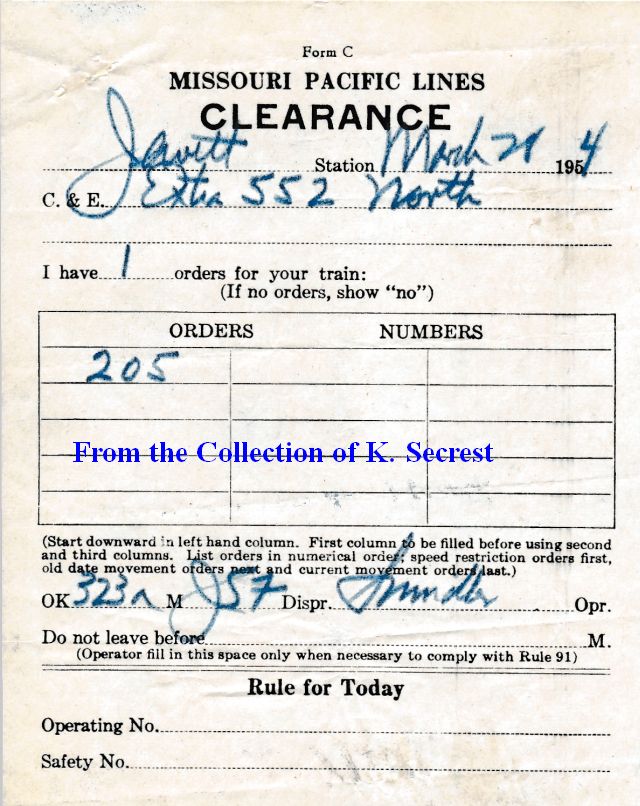 Form C
MISSOURI PACIFIC LINES
CLEARANCE
Jewett Station March 21 1954
C. & E. Extra 552 North
I have 1 orders for your train:
(If no orders, show “no”)
ORDERS NUMBERS
205
From the Collection of K. Secrest
(Start downward in left hand column. First column to be filled before using second
and third columns. List orders in numerical order; speed restriction orders first,
old date movement orders next and current movement orders last.)
OK 323a M J57 Dispr. Opr.
Do not leave before M.
(Operator fill in this space only when necessary to comply with Rule 91)
Rule for Today
Operating No.
Safety No.